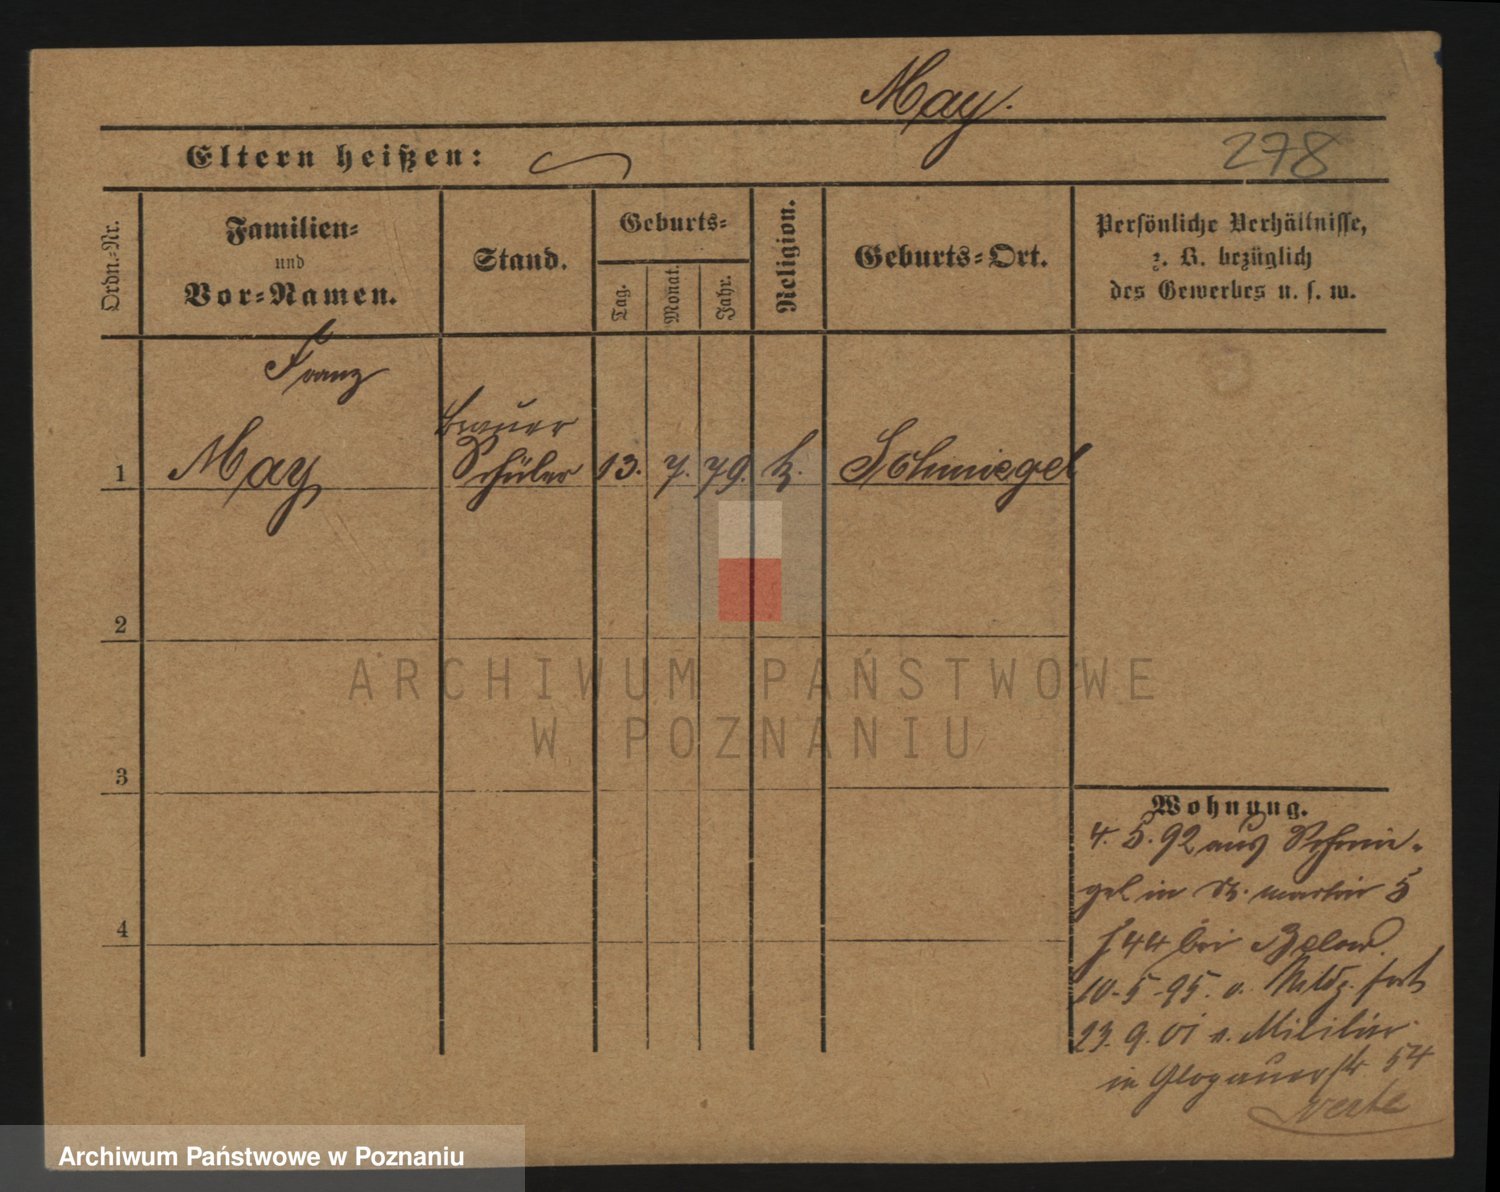 May.
Eltern heißen:
278
Ordn.-Nr.
Familien-
und
Vor-Namen.
Stand.
Geburts-
Tag.
Monat.
Jahr.
Religion.
Geburts-Ort.
Persönliche Verhältnisse,
z. B. bezüglich
des Gewerbes u. s. w.
Franz
Brauer
1 May Schüler 13. 7. 79. k. Schmiegel
2
3
4
Wohnung.
4. 5. 92 aus Schmie-
gel in St. Martin 5
44 bei
10-5-95. v. fort
23. 9. 01 v. Militär
in Glogauerstr. 54
ARCHIWUM PAŃSTWOWE
W POZNANIU
Archiwum Państwowe w Poznaniu